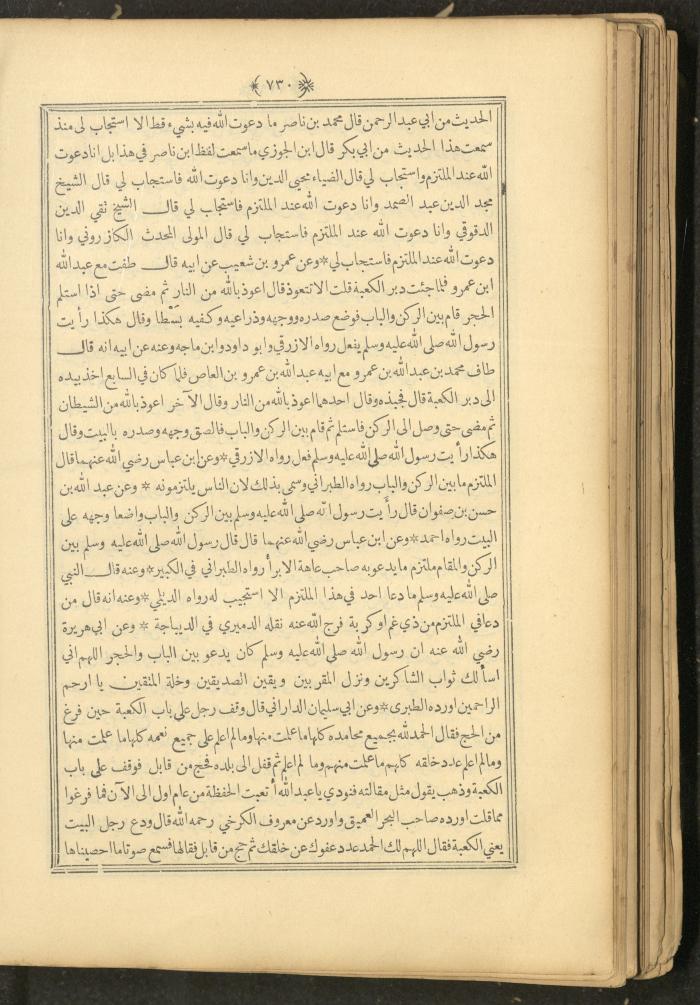 ﴿ ٧٣٠ ﴾
الحديث من ابي عبد الرحمن قال محمد بن ناصر ما دعوت الله فيه بشيء قط الا استجاب لى منذ
سمعت هذا الحديث من ابي بكر قال ابن الجوزي ما سمعت لفظ ابن ناصر في هذا بل انا دعوت
الله عند الملتزم واستجاب لي قال الضياء محيى الدين وانا دعوت الله فاستجاب لي قال الشيخ
مجد الدين عبد الصمد وانا دعوت الله عند الملتزم فاستجاب لي قال الشيخ تقي الدين
الدقوقي وانا دعوت الله عند الملتزم فاستجاب لي قال المولى المحدث الكازروني وانا
دعوت الله عند الملتزم فاستجاب لي * وعن عمرو بن شعيب عن ابيه قال طفت مع عبد الله
ابن عمرو فلما جئت دبر الكعبة قلت الا نتعوذ قال اعوذ بالله من النار ثم مضى حتى اذا استلم
الحجر قام بين الركن والباب فوضع صدره ووجهه وذراعيه وكفيه بسْطا وقال هكذا رأيت
رسول الله صلى الله عليه وسلم يفعل رواه الازرقي وابو داود وابن ماجه وعنه عن ابيه انه قال
طاف محمد بن عبد الله بن عمرو مع ابيه عبد الله بن عمرو بن العاص فلما كان في السابع اخذ بيده
الى دبر الكعبة قال فجبذه وقال احدهما اعوذ بالله من النار وقال الآخر اعوذ بالله من الشيطان
ثم مضى حتى وصل الى الركن فاستلم ثم قام بين الركن والباب فالصق وجهه وصدره بالبيت وقال
هكذا رأيت رسول الله صلى الله عليه وسلم فعل رواه الازرقي * وعن ابن عباس رضي الله عنهما قال
الملتزم ما بين الركن والباب رواه الطبراني وسمى بذلك لان الناس يلتزمونه * وعن عبد الله بن
حسن بن صفوان قال رأيت رسول الله صلى الله عليه وسلم بين الركن والباب واضعا وجهه على
البيت رواه احمد * وعن ابن عباس رضي الله عنهما قال قال رسول الله صلى الله عليه وسلم بين
الركن والمقام ملتزم ما يدعو به صاحب عاهة الا برأ رواه الطبراني في الكبير * وعنه قال النبي
صلى الله عليه وسلم ما دعا احد في هذا الملتزم الا استجيب له رواه الديلي * وعنه انه قال من
دعا في الملتزم من ذي غم او كربة فرج الله عنه نقله الدميري في الديباجة * وعن ابي هريرة
رضي الله عنه ان رسول الله صلى الله عليه وسلم كان يدعو بين الباب والحجر اللهم اني
اسألك ثواب الشاكرين ونزل المقربين ويقين الصديقين وخلة المتقين يا ارحم
الراحمين اورده الطبرى * وعن ابي سليمان الداراني قال وقف رجل على باب الكعبة حين فرغ
من الحج فقال الحمد لله بجميع محامده كلها ما علمت منها وما لم اعلم على جميع نعمه كلها ما علمت منها
وما لم اعلم عدد خلقه كلهم ما علمت منهم وما لم اعلم ثم قفل الى بلده فحج من قابل فوقف على باب
الكعبة وذهب يقول مثل مقالته فنودي يا عبد الله أتعبت الحفظة من عام اول الى الآن فما فرغوا
مما قلت اورده صاحب البحر العميق واورد عن معروف الكرخي رحمه الله قال ودع رجل البيت
يعني الكعبة فقال اللهم لك الحمد عدد عفوك عن خلقك ثم حج من قابل فقالها فسمع صوتا ما احصيناها